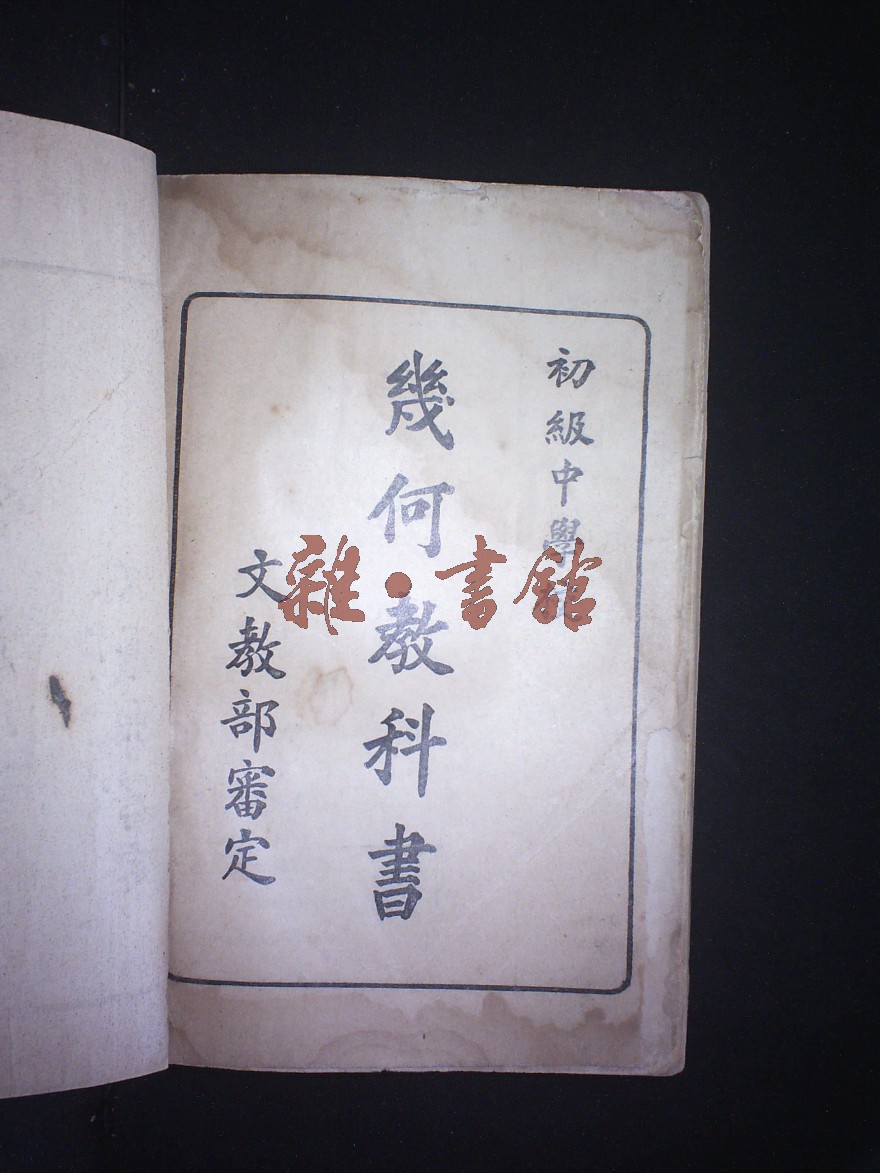 初級中學
幾何教科書
文教部審定
雜●書館